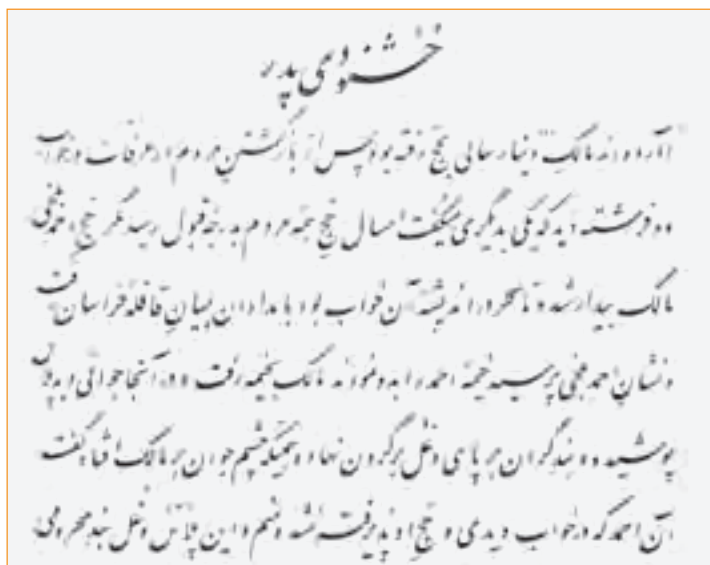 خشنودی پدر
آورده‌اند مالک دینار سالی بحج رفته بود پس از بازگشتن مردم از عرفات در خواب
دو فرشته دید که یکی بدیگری میگفت امسال حج همه مردم بدرجه قبول رسید مگر حج احمد بلخی
مالک بیدار شد و تا سحر در اندیشه آن خواب بود بامدادان بمیان قافله خراسان رفت
و نشان احمد بلخی پرسید خیمه احمد را بدو نمودند مالک بخیمه رفت و در آنجا جوانی دید پلاس
پوشیده و بند گران بر پای و غل بر گردن نهاده همینکه چشم جوان بر مالک افتاد گفت
آن احمد که در خواب دیدی و حج او پذیرفته نشد منم و این پلاس و غل بند محرومی